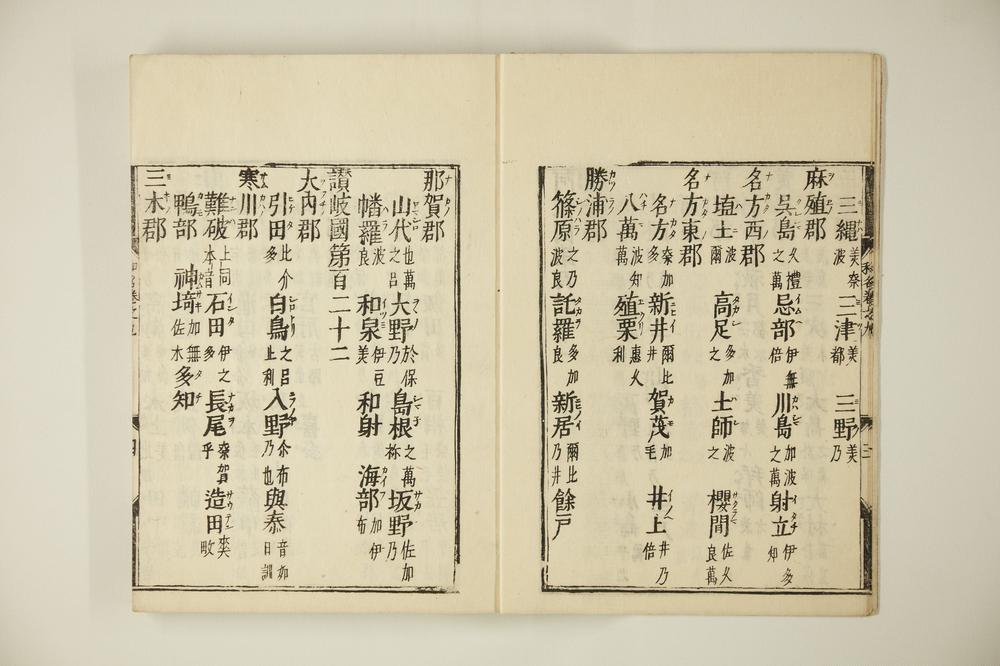 三縄 美奈波 三津 美都 三野 美乃
麻殖郡
呉島 久禮之萬 忌部 伊無倍 川島 加波之萬 射立 伊多知
名方西郡
埴土 波爾 高足 多加之 土師 波之 櫻間 佐久良萬
名方東郡
名方 奈加多 新井 爾比井 賀茂 加毛 井上 井乃倍
八萬 波知萬 殖栗 惠久利
勝浦郡
篠原 之乃波良 託羅 多加良 新居 爾比乃井 餘戸
那賀郡
山代 也萬之呂 大野 於保乃 島根 之萬祢 坂野 佐加乃
幡羅 波良 和泉 伊豆美 和射 海部 加伊布
讃岐國第百二十二
大內郡
引田 比介多 白鳥 之呂止利 入野 介布乃也 與泰 音如日訓
寒川郡
難破 上同本音 石田 伊之多 長尾 奈賀乎 造田
鴨部 神埼 加無佐木 多知
三木郡